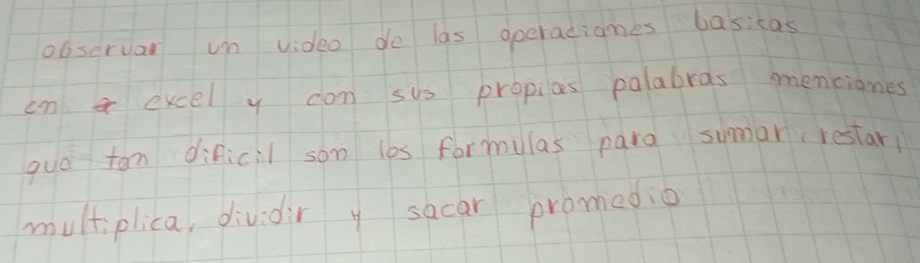 observar un video de las operaciones basicas
en excel y con sus propias palabras menciones
que tan dificil son los formulas para sumar, restar,
multiplica, dividir y sacar promedio